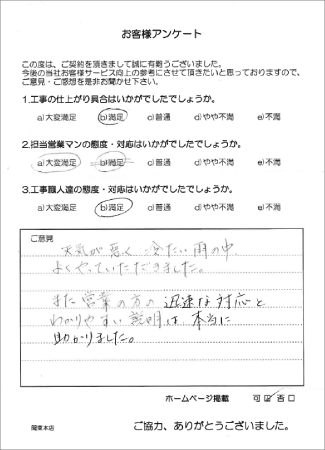 お客様アンケート
この度は、ご契約を頂きまして誠に有難うございました。
今後の当社お客様サービス向上の参考にさせて頂きたいと思っておりますので、
ご意見・ご感想を是非お聞かせ下さい。
1.工事の仕上がり具合はいかがでしたでしょうか。
a)大変満足 b)満足 c)普通 d)やや不満 e)不満
2.担当営業マンの態度・対応はいかがでしたでしょうか。
a)大変満足 b)満足 c)普通 d)やや不満 e)不満
3.工事職人達の態度・対応はいかがでしたでしょうか。
a)大変満足 b)満足 c)普通 d)やや不満 e)不満
ご意見
天気が悪く 冷たい雨の中
よくやっていただきました。
また営業の方の迅速な対応と
わかりやすい説明は本当に
助かりました。
ホームページ掲載 可□ 否□
関東本店 ご協力、ありがとうございました。